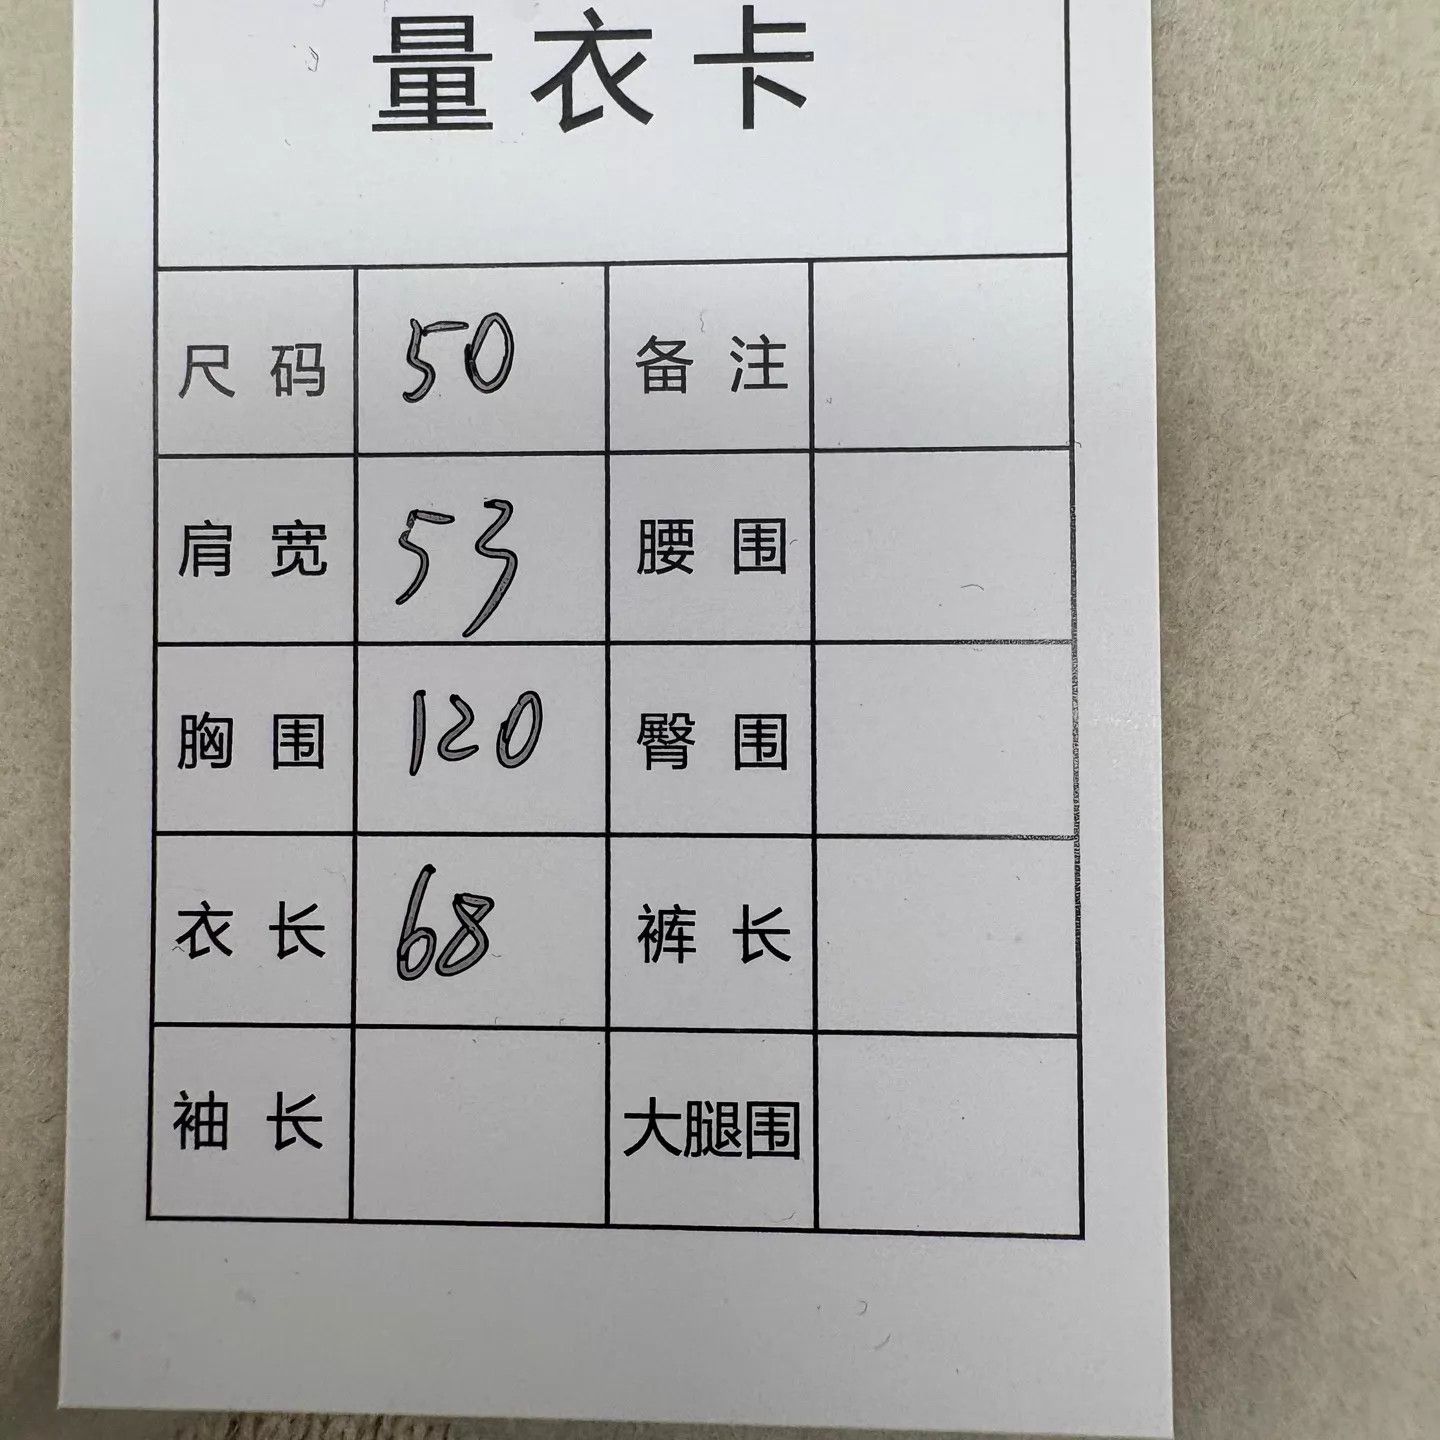 量衣卡
尺码 50 备注
肩宽 53 腰围
胸围 120 臀围
衣长 68 裤长
袖长 大腿围